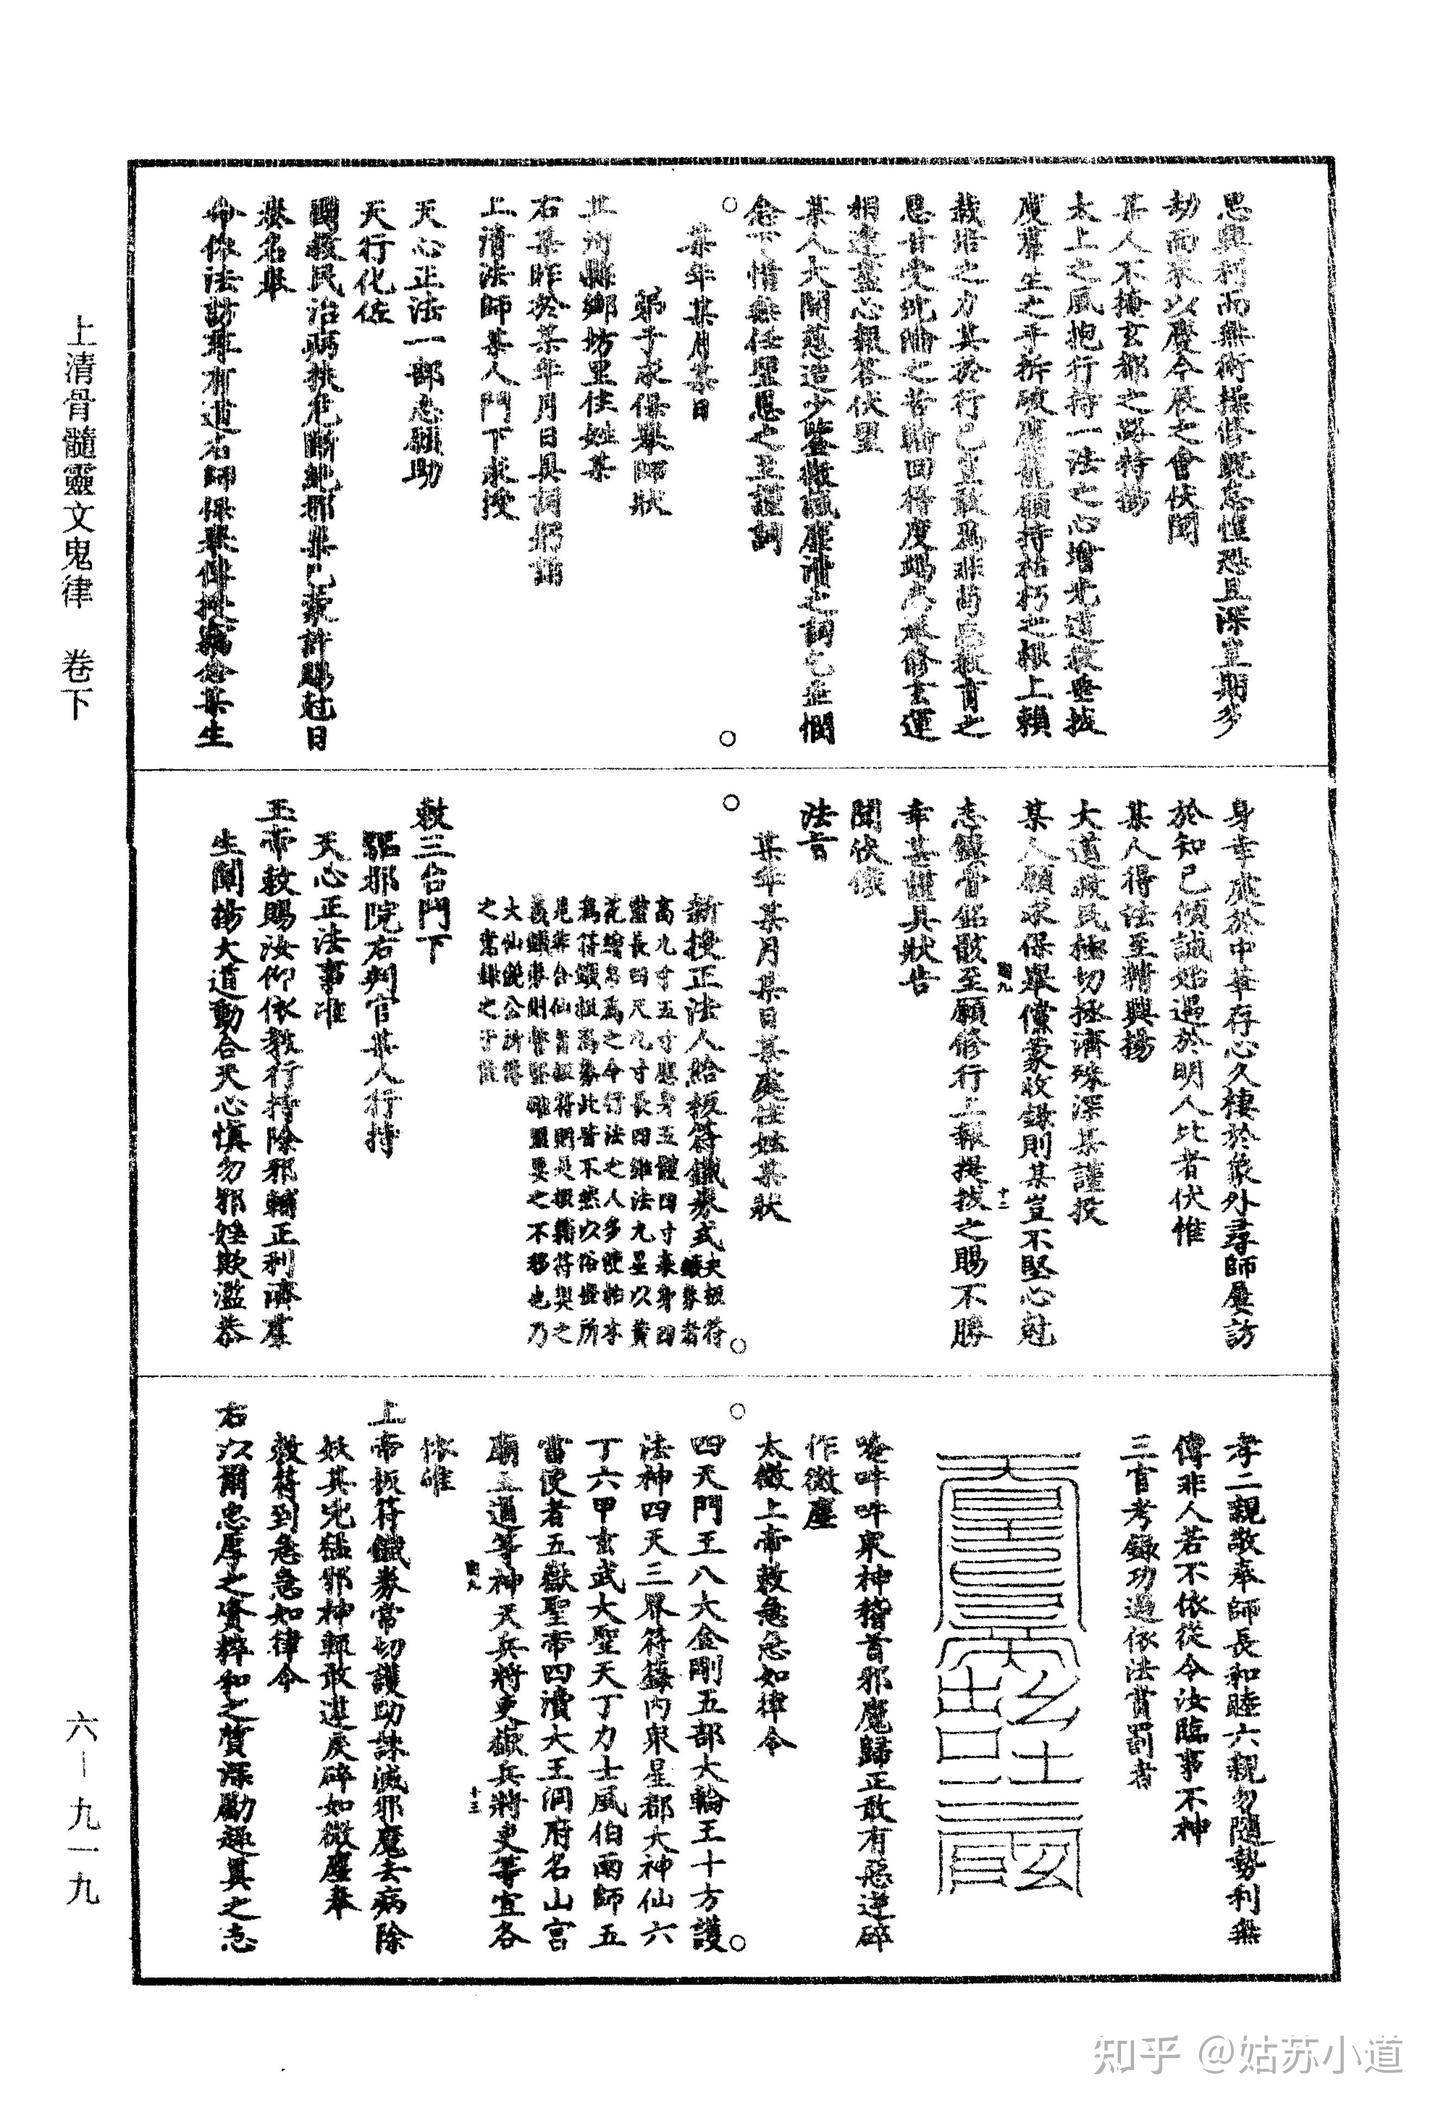 上清骨髓靈文鬼律 卷下
六-九一九
思興利而無術操修既怠惶恐且深豈期多
劫而來以慶今辰之會伏聞
某人不掩玄都之路特揚
太上之風抱行持一法之心增光道教垂拔
度羣生之手拆破魔龍願持枯朽之根上賴
栽培之力其於行已豈敢為非苟忘教育之
恩甘受沉淪之苦輪回得度竭志承修玄運
相逢盡心報答伏望
某人大開慈造少鑒微誠塵凟之詞乞垂憫
念下情無任望恩之至謹詞
某年某月某日
弟子求保舉師狀
某州縣鄉坊里住姓某
右某昨於某年月日具詞躬詣
上清法師某人門下求授
天心正法一部志願助
天行化佐
國救民治病扶危斷絕邪祟已蒙許賜尅日
發名舉
令依法訪尋有道名師保舉傳授竊念某生
身幸處於中華存心久棲於象外尋師屢訪
於知己傾誠始遇於明人比者伏惟
某人得法至精興揚
大道救民極切拯濟殊深某謹投
某人願求保舉儻蒙收錄則某豈不堅心尅
志鏤骨銘骸至願修行上報提拔之賜不勝
幸甚謹具狀告
聞伏候
法旨
某年某月某日某處住姓某狀
新授正法人給板符鐵券式夫板符鐵券者
高九寸五寸應身五體四寸表身四
靈長四尺九寸長四維法九星以黃
花繒帛為之今行法之人多使柏木
為符鐵板為券此皆不然以俗世所
是非合仙旨板符則是板籍符契之
義鐵券則誓堅確盟要之不移也乃
大仙銳公所傳
之寓錄之于後
敕三台門下
驅邪院右判官某人行持
天心正法事准
玉帝敕賜汝仰依教行持除邪輔正利濟羣
生闡揚大道動合天心慎勿邪婬欺濫恭
孝二親敬奉師長和睦六親勿隨勢利無
傳非人若不依從令汝臨事不神
三官考錄功過依法賞罰者
唵吽吽眾神稽首邪魔歸正敢有惡逆碎
作微塵
太微上帝敕急急如律令
四天門王八大金剛五部大輪王十方護
法神四天三界符籙內眾星郡大神仙六
丁六甲玄武大聖天丁力士風伯雨師五
當使者五嶽聖帝四瀆大王洞府名山宮
廟五道等神天兵將吏嶽兵將吏等宜各
依准
上帝板符鐵券常切護助誅滅邪魔去病除
妖其兇猛邪神輒敢違戾碎如微塵奉
敕符到急急如律令
右以爾忠厚之資粹和之質深勵趣異之志
知乎 @姑苏小道